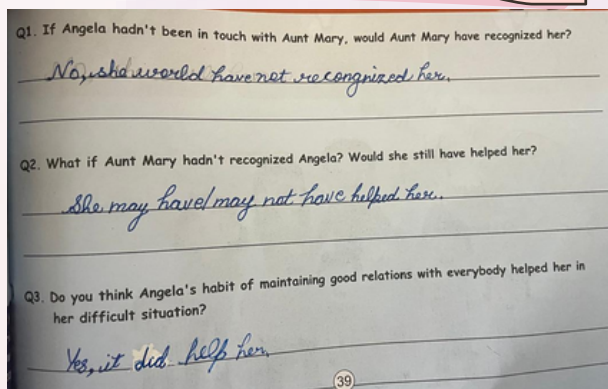 Q1. If Angela hadn't been in touch with Aunt Mary, would Aunt Mary have recognized her?
No, she world have not recongnized her.
Q2. What if Aunt Mary hadn't recognized Angela? Would she still have helped her?
She may have/may not have helped her.
Q3. Do you think Angela's habit of maintaining good relations with everybody helped her in
her difficult situation?
Yes, it did help her.
39